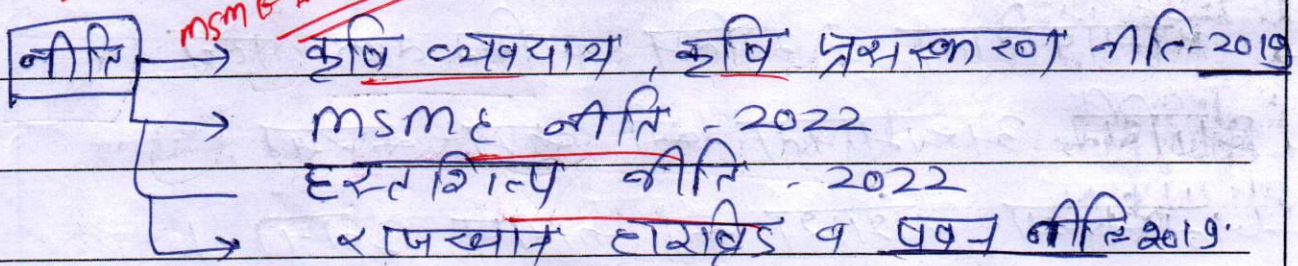 MSME
नीति → कृषि व्यवयाय, कृषि प्रसस्करण नीति-2019
→ MSME नीति - 2022
हस्तशिल्प नीति - 2022
→ राजस्थान हाइब्रिड व पवन नीति-2019.